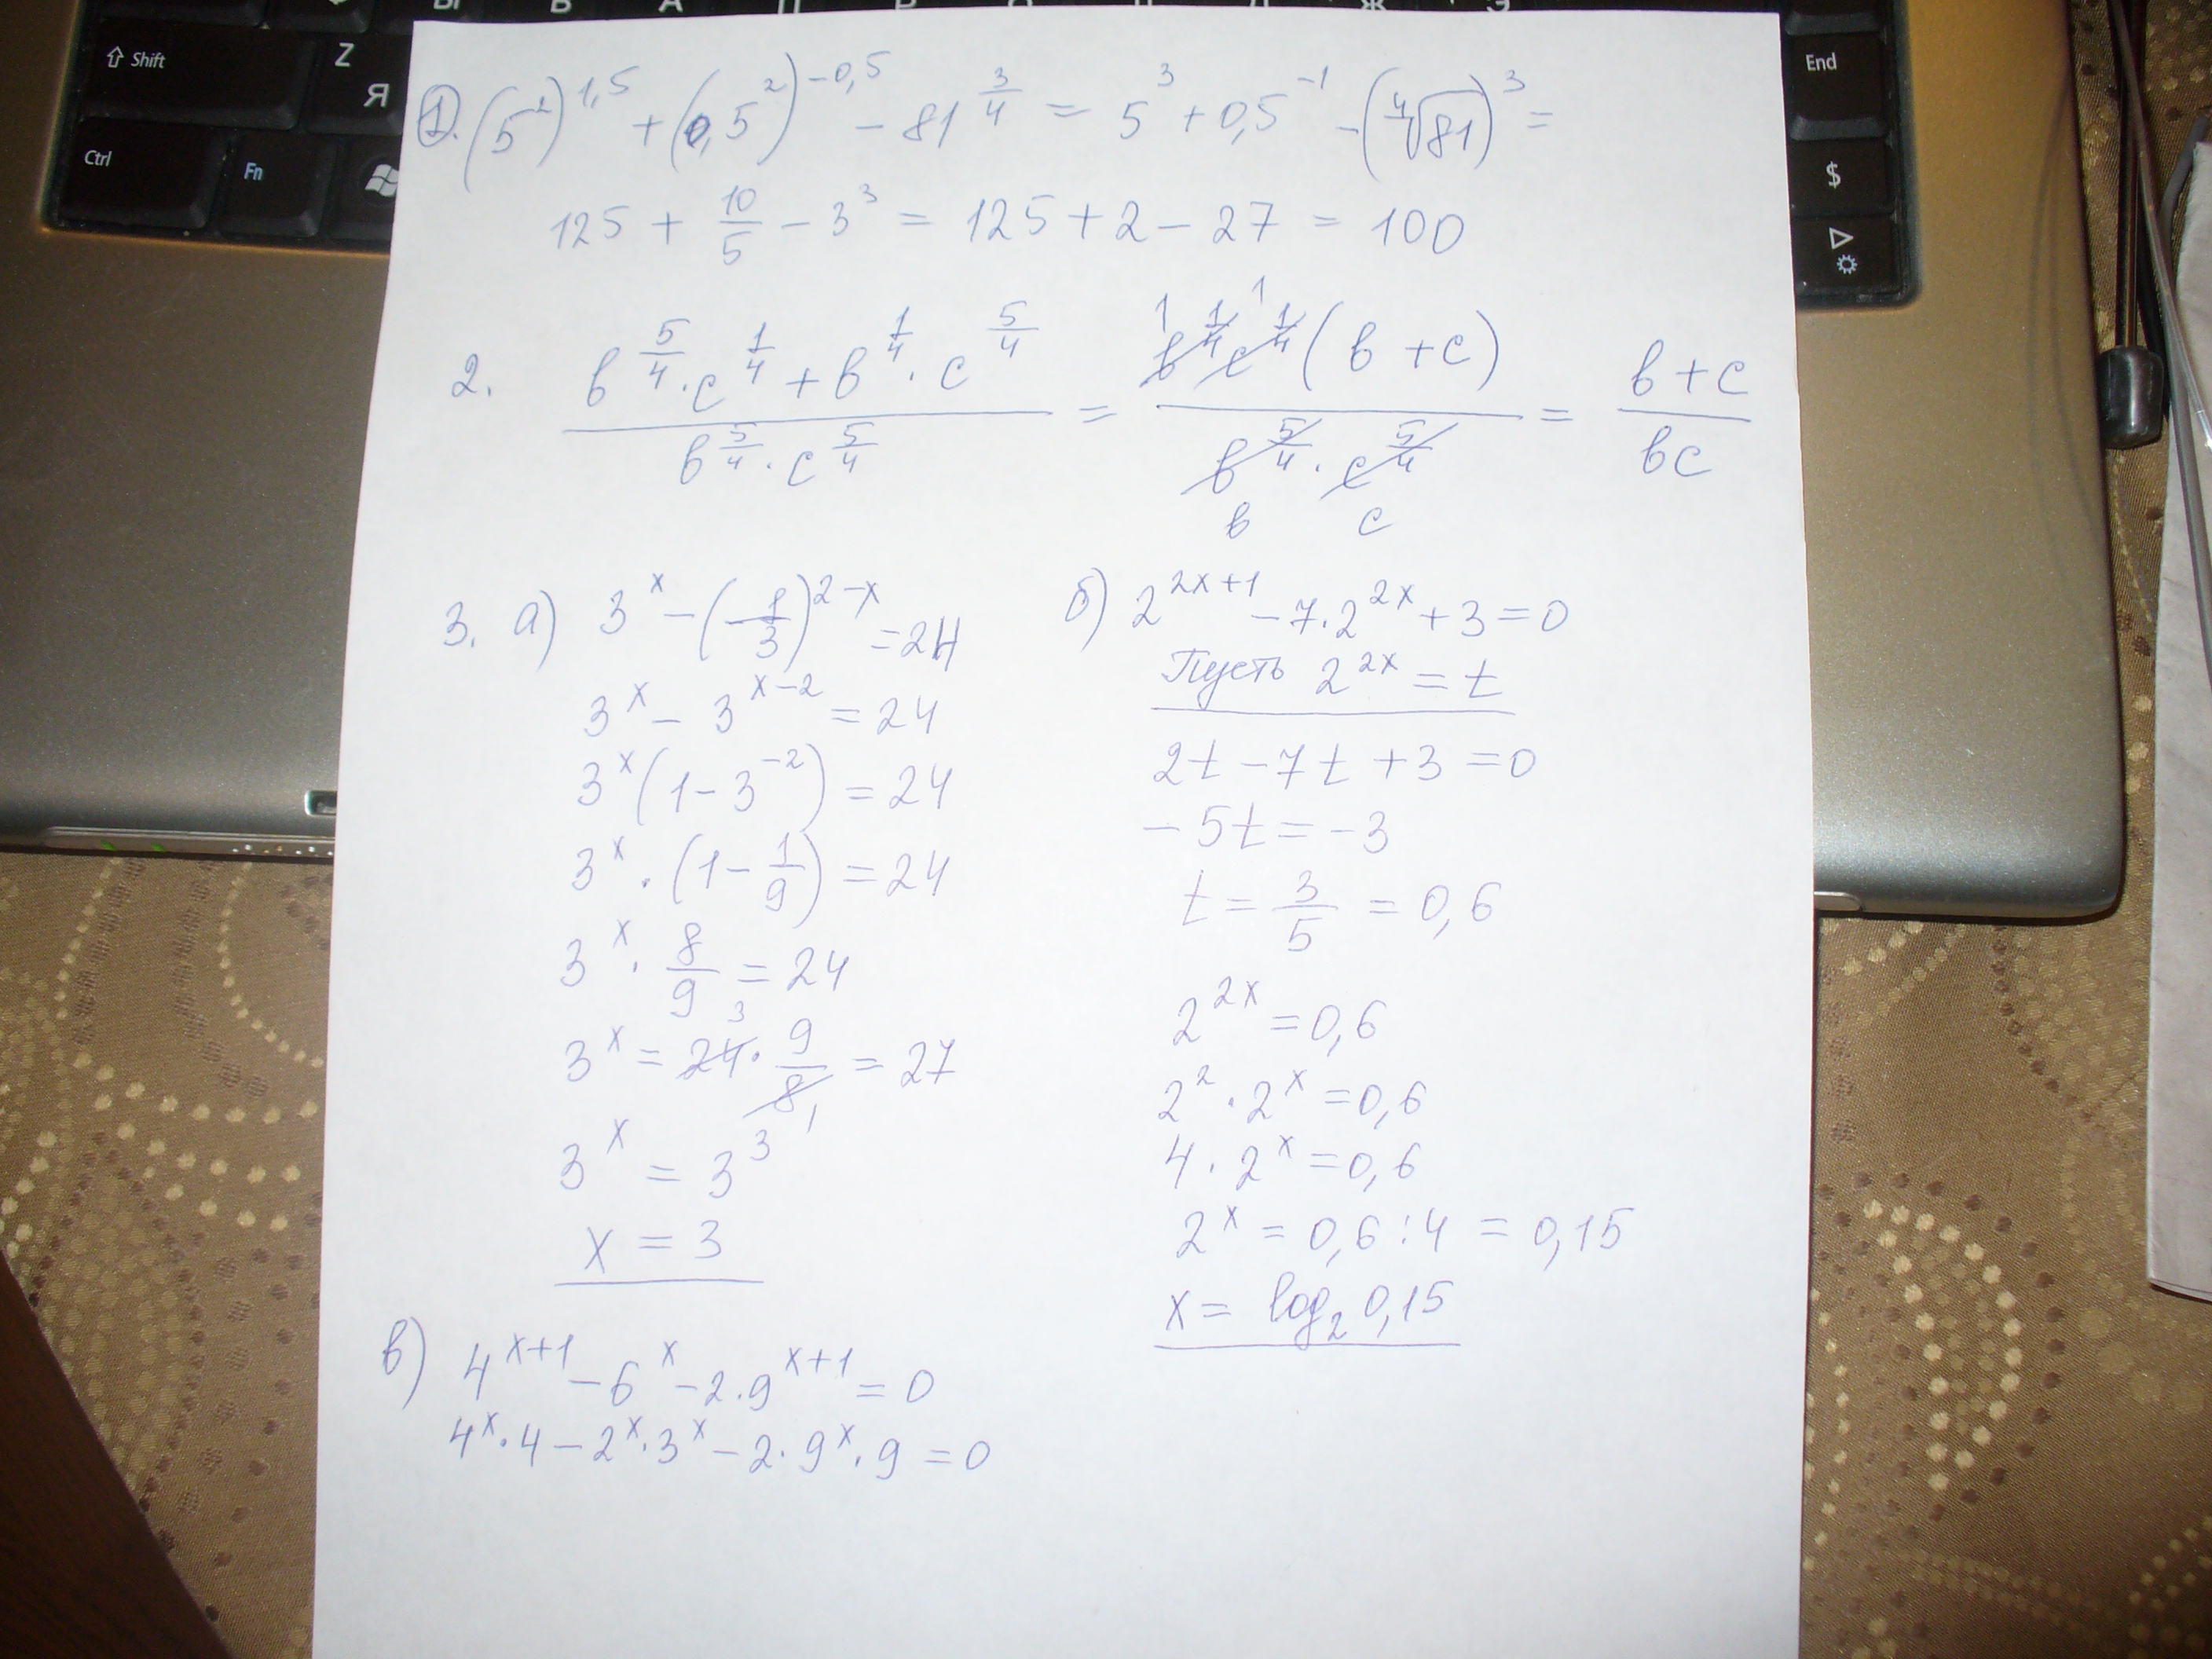 Ы В А П Р О Л Д Ж Э
⇧ Shift Z Я End
Ctrl Fn $
1. (5²)^1,5 + (0,5²)^−0,5 − 81^(3/4) = 5³ + 0,5^−1 − (⁴√81)³ =
125 + 10/5 − 3³ = 125 + 2 − 27 = 100
2. (в^(5/4) · с^(1/4) + в^(1/4) · с^(5/4)) / (в^(5/4) · с^(5/4)) = (в^(1/4) с^(1/4) (в + с)) / (в^(5/4) · с^(5/4)) = (в + с) / (вс)
3. а) 3^x − (1/3)^(2−x) = 24
3^x − 3^(x−2) = 24
3^x (1 − 3^−2) = 24
3^x · (1 − 1/9) = 24
3^x · 8/9 = 24
3^x = 24 · 9/8 = 27
3^x = 3^3
x = 3
б) 2^(2x+1) − 7 · 2^(2x) + 3 = 0
Пусть 2^(2x) = t
2t − 7t + 3 = 0
− 5t = −3
t = 3/5 = 0,6
2^(2x) = 0,6
2² · 2^x = 0,6
4 · 2^x = 0,6
2^x = 0,6 : 4 = 0,15
x = log₂ 0,15
в) 4^(x+1) − 6^x − 2 · 9^(x+1) = 0
4^x · 4 − 2^x · 3^x − 2 · 9^x · 9 = 0